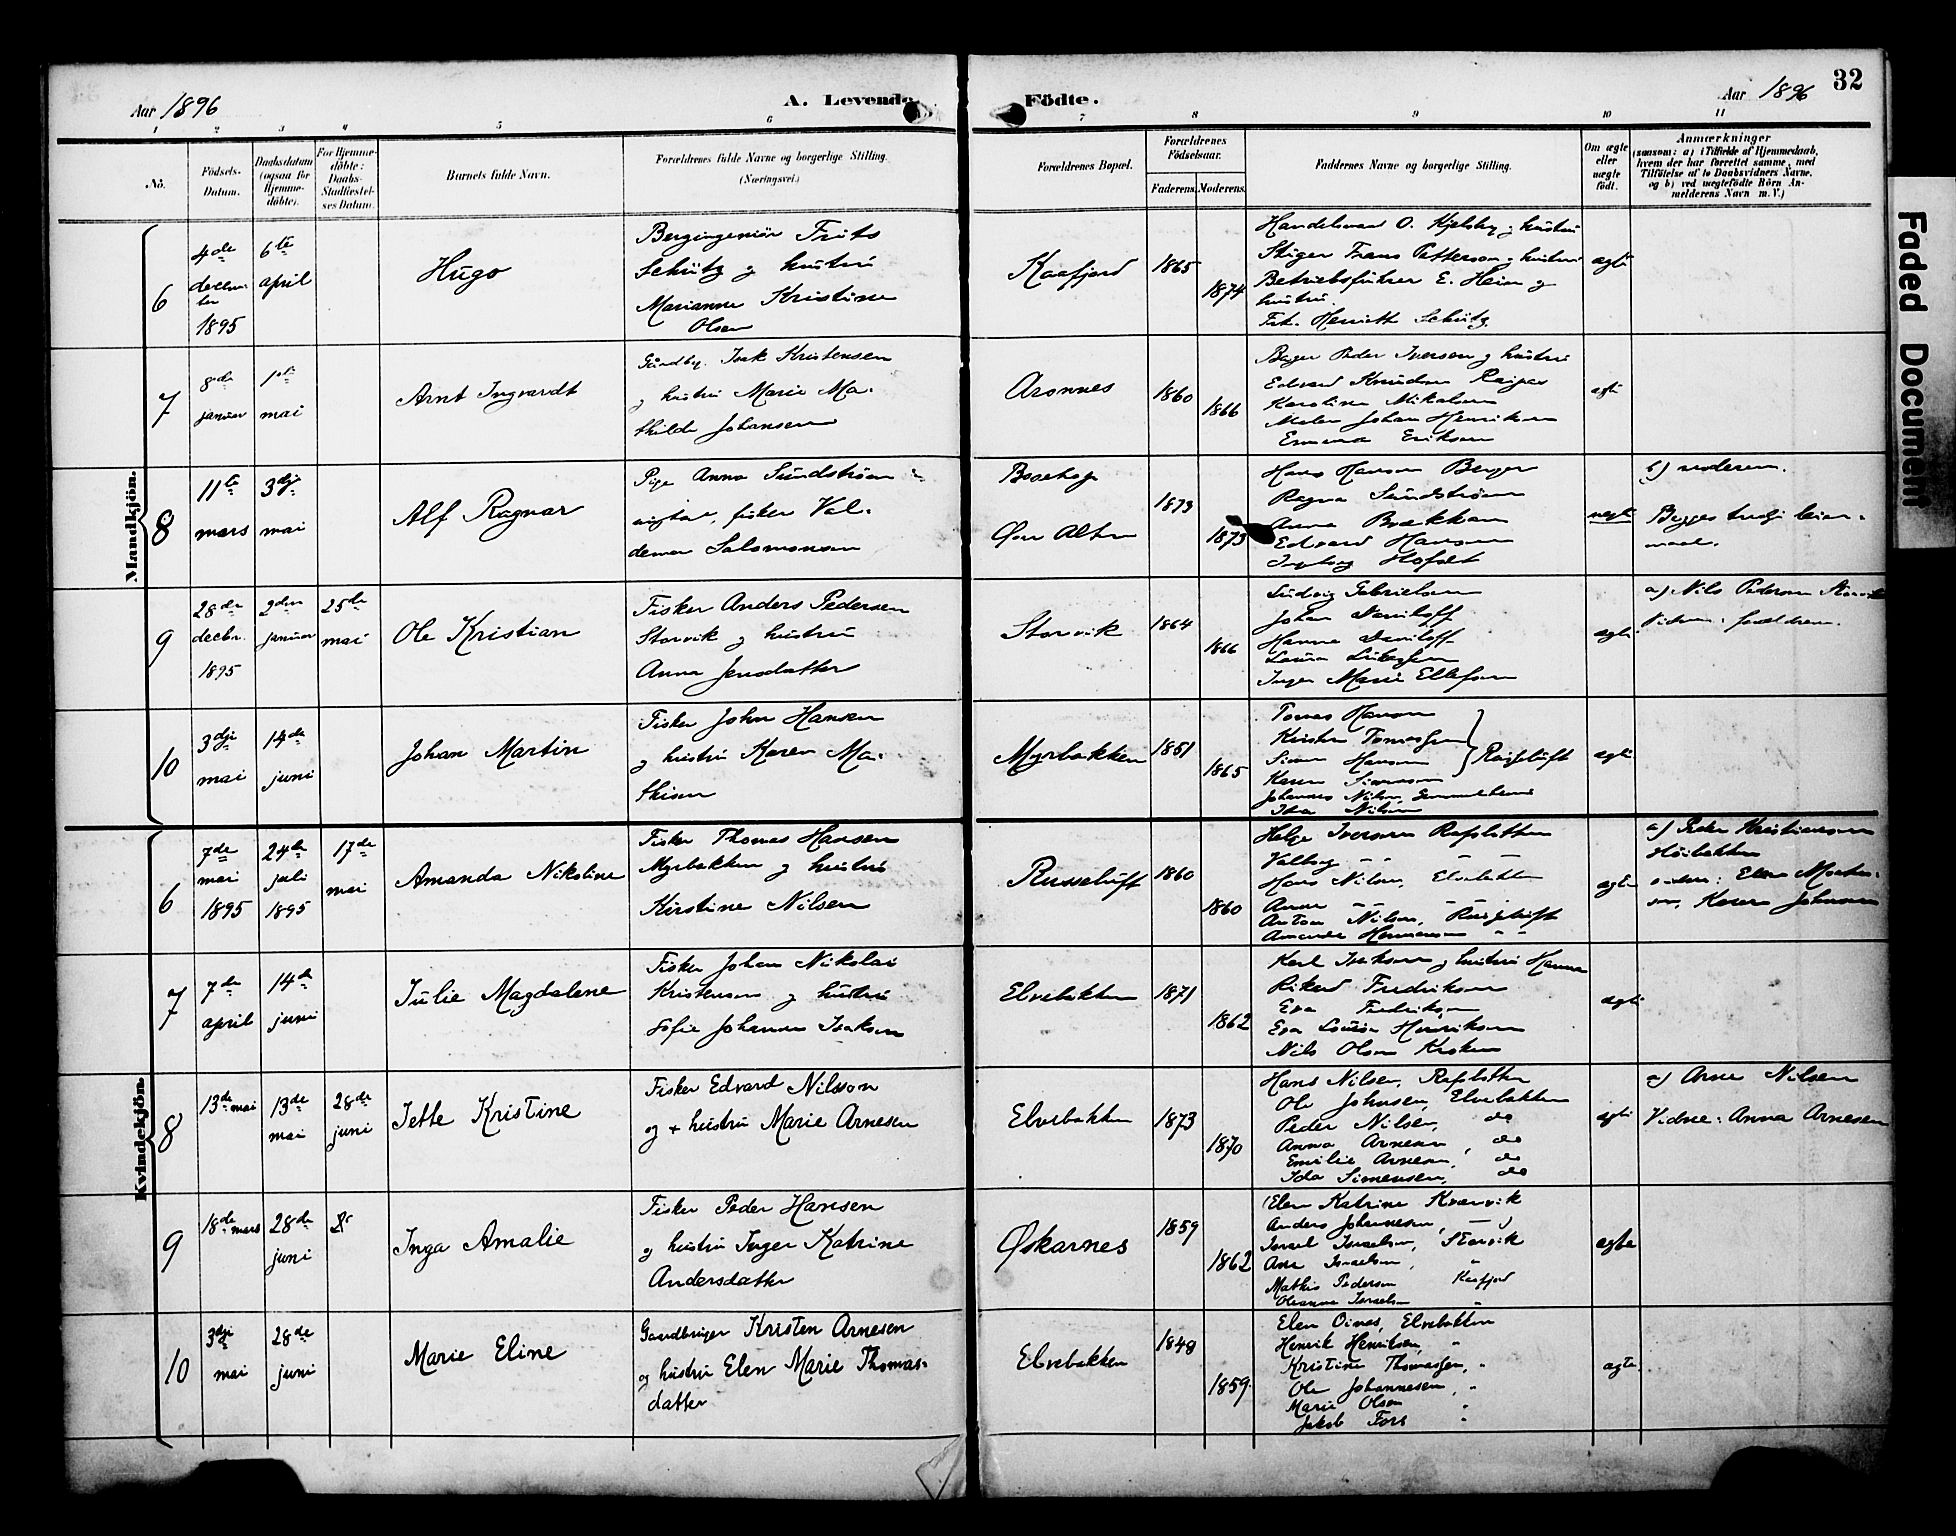 Aar 1896
A. Levende
Födte.
Aar 1896
32
1 2 3 4 5 6 7 8 9 10 11
No.
Födsels-
Datum.
Daabsdatum
(ogsaa for
Hjemme-
döbte).
For Hjemme-
döbte:
Daabs-
Stadfæstel-
ses Datum.
Barnets fulde Navn.
Forældrenes fulde Navne og borgerlige Stilling.
(Næringsvei.)
Forældrenes Bopæl.
Forældrenes
Födselsaar.
Faderens. Moderens.
Faddernes Navne og borgerlige Stilling.
Om ægte
eller
uægte
födt.
Anmærkninger
(saasom: a) i Tilfælde af Hjemmedaab,
hvem der har forrettet samme, med
Tilföielse af to Daabsvidners Navne,
og b) ved uægtefödte Börn An-
melderens Navn m. V.)
Mandkjön.
6
4de
decem-
ber
1895
6te
april
Hugo
Bergingeniör Frits
Schütz og hustru
Marianne Kristine
Olsen
Kaafjord
1865
1874
Handelsmand O. Kjelsberg og hustru
Stiger Frans Pettersen og hustru
Betriebsführer E. Heim og
hustru.
Frk. Henriette Schütz
ægte
7
8de
januar
1ste
mai
Arnt Ingvardt
Gaardbr. Isak Kristensen
og hustru Marie Ma-
thilde Johansen
Aronnes
1860
1866
Peder Iversen og hustru
Edvard Knudsen Raipas
Karoline Mikalsen
Maler Johan Henriksen
Emma Eriksen
ægte
8
11te
mars
3dje
mai
Alf Ragnar
Pige Anna Sundström
ungkar, fisker Val-
demar Salomonsen
Bossekop
Övre Alten
1873
1873
Hans Hansen Berger
Ragna Sundström
Anna Brækkan
Edvard Hansen
Ingeborg
uægte
b) moderen.
Begges tredje leier-
maal.
9
28de
decbr.
1895
2den
januar
25de
mai
Ole Kristian
Fisker Anders Pedersen
Storvik og hustru
Anna Jensdatter
Storvik
1864
1866
Ludvig Gabrielsen
Johan Daniloff
Hanna Daniloff
Laura Lukassen
Inger Marie Ellefsen
ægte
a) Nils Pedersen Storvik
Vidner: forældrene.
10
3dje
mai
14de
juni
Johan Martin
Fisker John Hansen
og hustru Karen Ma-
thisen
Myrbakken
1851
1865
Tomas Hansen
Kirsten Tomassen
Simon Hansen
Karen Simonsen
Russeluft
Johannes Nilsen
Ida Nilsen
ægte
Kvindekjön.
6
7de
mai
1895
24de
juli
1895
17de
mai
Amanda Nikoline
Fisker Thomas Hansen
Myrbakken og hustru
Kirstine Nilsen
Russeluft
1860
1860
Helge Iversen Rafsbotten
Valborg
Hans Nilsen, Elvebakken
Anne
Anton Nilsen, Russeluft
Amanda Hermansen
ægte
a) Peder Kristiansen
Höibakken
vidner: Elen Morten-
sen, Karen Johansen
7
7de
april
14de
juni
Julie Magdalene
Fisker Johan Nikolai
Kristensen og hustru
Sofie Johanne Isaksen
Elvebakken
1871
1862
Karl Isaksen og hustru Hanna
Rikard Fredriksen
Eva Fredriksen
Eva Lovisa Henriksen
Nils Olsen
ægte
8
13de mai
13de
mai
28de
juni
Jette Kristine
Fisker Edvard Nilsson
og + hustru Marie Arnesen
Elvebakken
1873
1870
Hans Nilsen, Rafsbotten
Ole Johnsen, Elvebakken
Peder Nilsen, do
Anna Arnesen, do
Emilie Arnesen, do
Ida Simensen, do
ægte
a) Arne Nilsen
Vidne: Anna Arnesen
9
18de mars
28de
juni
Inga Amalie
Fisker Peder Hansen
og hustru Inger Katrine
Andersdatter
Öskarnes
1859
1862
Elen Katrine Kvænvik
Anders Johannesen,
Israel Israelsen, Storvik
Ane Israelsen, "
Mathis Pedersen Kaafjord
Oleanna Israelsen "
ægte
10
3dje
mai
28de
juni
Marie Eline
Gaardbruger Kristen Arnesen
og hustru Elen Marie Thomas-
datter
Elvebakken
1848
1859.
Elen Oines, Elvebakken
Henrik Henriksen, "
Kristine Thomassen, "
Ole Johannesen, "
Marie Olsen "
Jakob Fors "
ægte
Faded Document